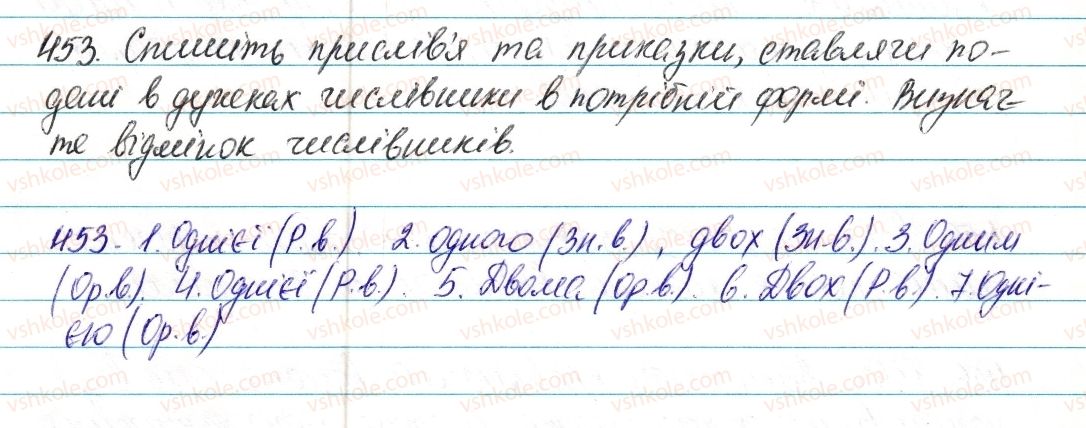 453. Спишіть прислів'я та приказки, ставлячи по-
дані в дужках числівники в потрібній формі. Визнач-
те відмінок числівників.
453. 1. Однієї (Р.в.) 2. Одного (Зн.в.), двох (Зн.в.). 3. Одним
(Ор.в). 4. Однієї (Р.в.). 5. Двома (Ор.в). 6. Двох (Р.в.). 7. Одні-
єю (Ор.в.)